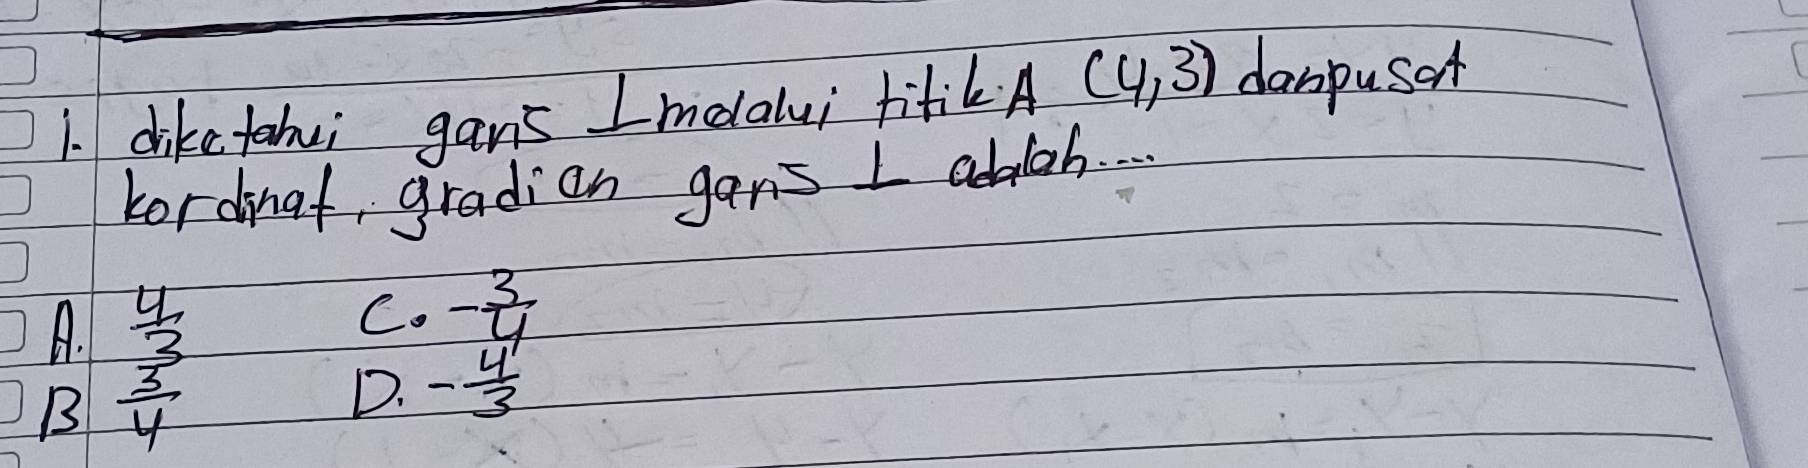 1. diketahui garis L melalui titik A (4,3) dan pusat
kordinat, gradian garis L adalah....
A. 4/3 C. -3/4
B 3/4 D. -4/3